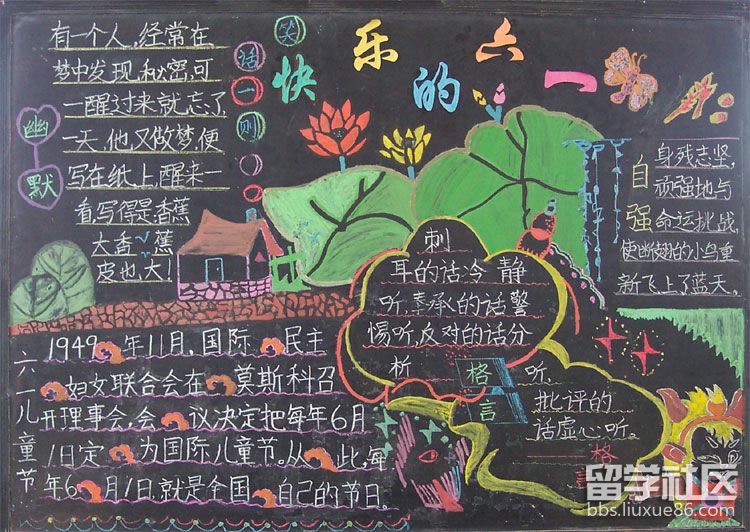 快乐的六一
笑
话
一
则
幽
默
有一个人,经常在
梦中发现秘密,可
一醒过来就忘了
一天,他又做梦,便
写在纸上,醒来一
看,写得是香蕉
大香蕉
皮也大!
自
强
身残志坚,
顽强地与
命运挑战,
使断翅的小鸟重
新飞上了蓝天。
刺
耳的话冷静
听,奉承的话警
惕听,反对的话分
析听,
批评的
话虚心听。
格
言
格
言
六一儿童节
1949年11月,国际民主
妇女联合会在莫斯科召
开理事会,会议决定把每年6月
1日定为国际儿童节。从此,每
年6月1日,就是全国自己的节日。
留学社区
bbs.liuxue86.com